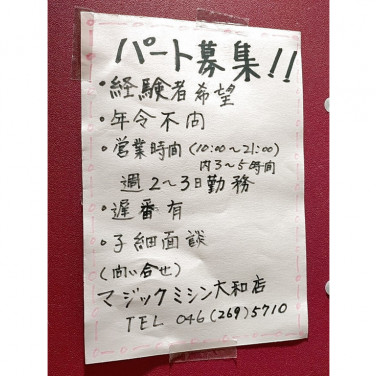 パート募集!!
・経験者希望
・年令不問
・営業時間(10:00~21:00)
内3~5時間
週2~3日勤務
・遅番有
・子細面談
(問い合せ)
マジックミシン大和店
TEL 046(269)5710